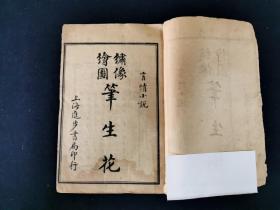 言情小說
繡像
繪圖
筆生花
上海進步書局印行